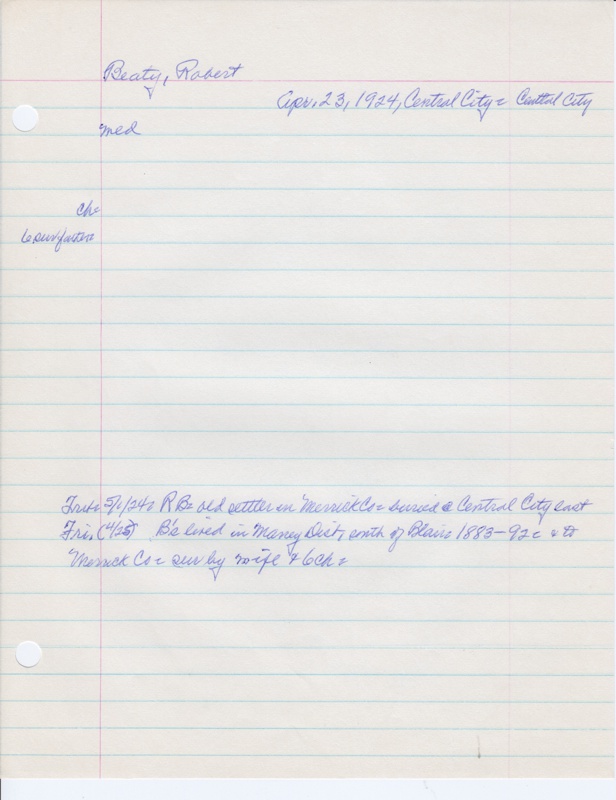 Beaty, Robert
Apr. 23, 1924, Central City = Central City
med
ch=
6 sur father=
Trib= 5/1/24= RB= old settler in Merrick Co= buried @ Central City last
Fri. (4/25) B's lived in Maney Dist, south of Blair= 1883-92= & to
Merrick Co= sur by wife & 6ch=